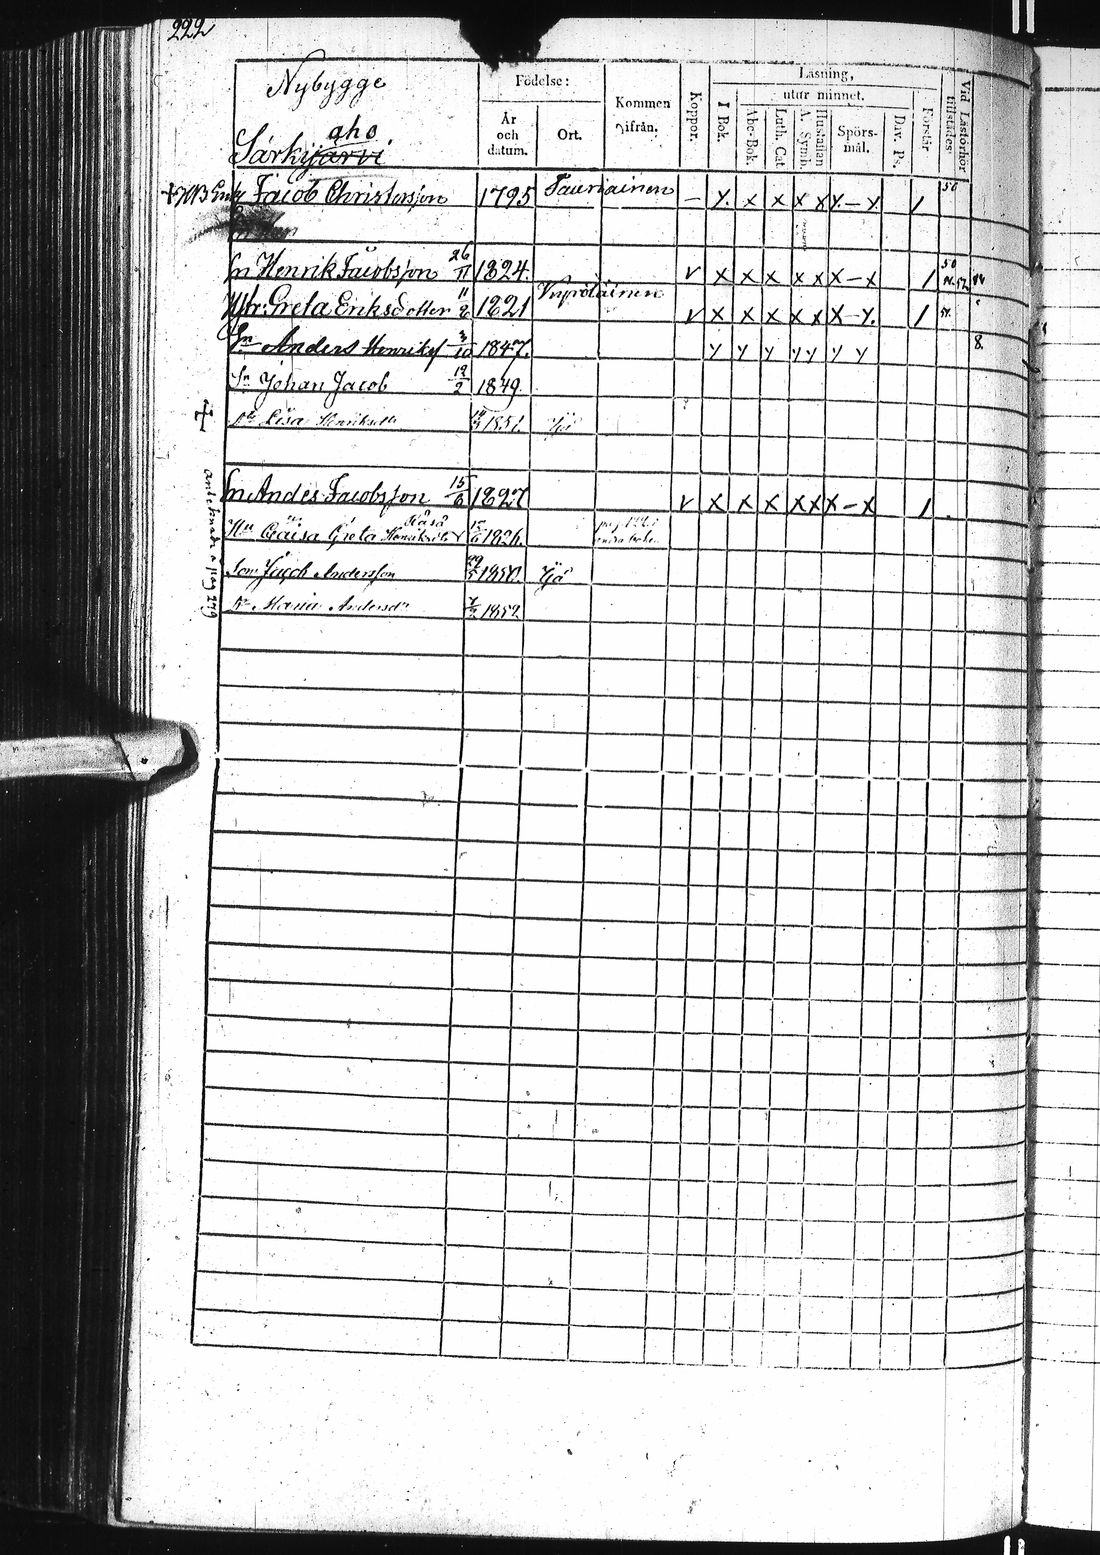 222
Nybygge
aho
Särkijärvi
Födelse:
År och datum.
Ort.
Kommen ifrån.
Koppor.
Läsning,
utur minnet.
I Bok.
Abc-Bok.
Luth. Cat
A. Symb.
Hustaflan
Spörs-mål.
Dav. Ps.
Förstår
Vid Läsförhör tillstädes
Jacob Christersson 1795 Tauriainen — y. x x x x y — y. / 50
Sn Henrik Jacobsson 26/11 1824. v x x x x x x — x / 50
Hstr: Greta Eriksdotter 11/2 1821 v x x x x x x — y. / 51.
Sn Anders Henriks 3/10 1847. y y y y y y y 8.
Sn Johan Jacob 12/2 1849.
Lisa Henriksdr 1851.
Sn Andes Jacobsson 15/6 1827 v x x x x x x — x /
Caisa Greta 1826.
Son Jacob Andersson 1850.
Dr Maria Andersdr 1852
antecknade å pag 279